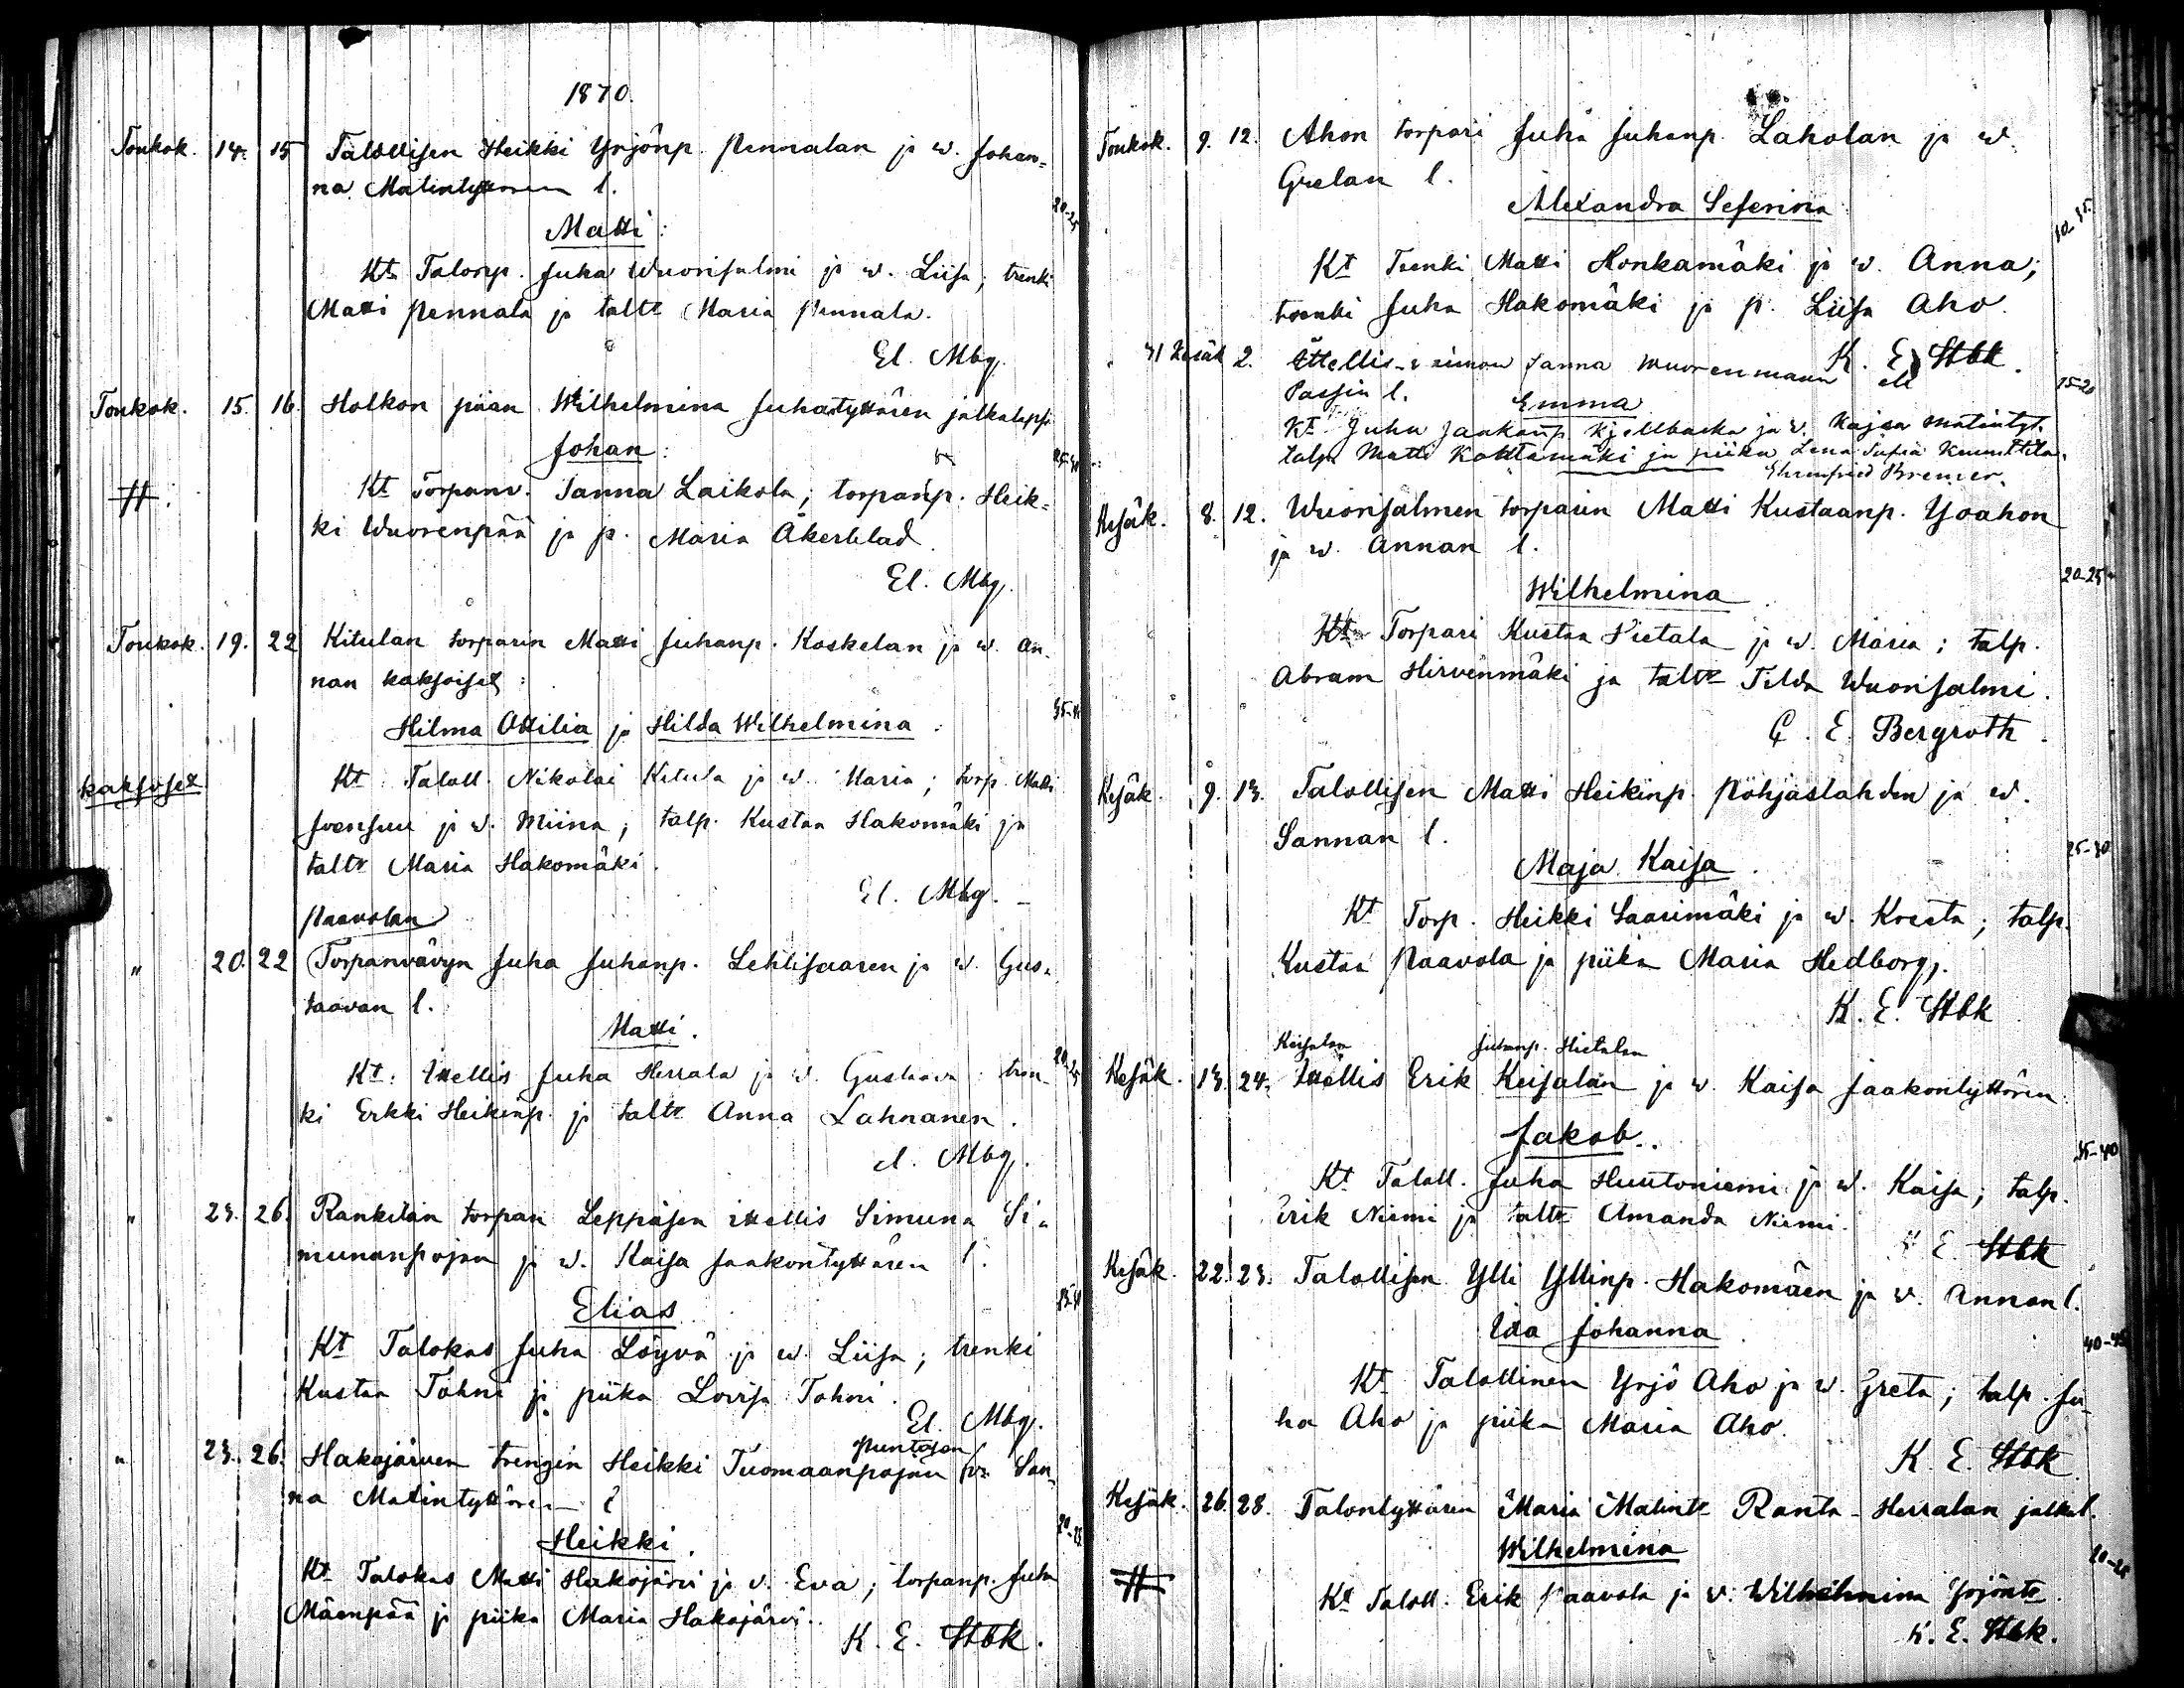 1870.
Toukok. 14. 15 Talollisen Heikki Yrjönp. Pennalan ja w. Johan=
na Matintyttären l.
20-25
Matti:
Kt. Talonp. Juha Wuorisalmi ja w. Liisa; trenki
Matti Pennala ja taltr Maria Pennala.
El. Mbg.
Toukok. 15. 16. Holkon piian Wilhelmina Juhantyttären jalkalapsi
Johan:
Kt Torpanv. Sanna Laikola; torpanp. Heik=
ki Wuorenpää ja p. Maria Åkerblad.
El. Mbg.
Toukok. 19. 22 Kitulan torparin Matti Juhanp. Koskelan ja w. An-
nan kaksoiset:
Hilma Ottilia ja Hilda Wilhelmina.
kaksoset Kt Taloll. Nikolai Kitula ja w. Maria; torp. Matti
Joensuu ja w. Miina; talp. Kustaa Hakomäki ja
taltr Maria Hakomäki.
El. Mbg.
Paavolan
" 20. 22 Torpanvävyn Juha Juhanp. Lehtisaaren ja w. Gus-
taavan l.
Matti.
Kt. Itellis Juha Herrala ja w. Gustava; tren-
ki Erkki Heikinp. ja taltr Anna Lahnanen.
El. Mbg.
" 23. 26. Rankilan torpan Leppäsen itellis Simuna Si-
munanpojan ja w. Kaisa Jaakontyttären l.
Elias
Kt Talokas Juha Löyvä ja w. Liisa; trenki
Kustaa Tohni ja piika Lovisa Tohni.
El. Mbg.
Puntosen
" 23. 26. Hakojärven trengin Heikki Tuomaanpojan ja w. San-
na Matintyttären l
20-25
Heikki.
Kt Talokas Matti Hakojärvi ja v. Eva; torpanp. Juha
Mäenpää ja piika Maria Hakojärvi.
K. E. Stbk.
Toukok. 9. 12. Ahon torpari Juha Juhanp. Laholan ja w.
Gretan l.
Alexandra Seferina
Kt Trenki Matti Honkamäki ja w. Anna;
trenki Juha Hakomäki ja p. Liisa Aho.
K. E. Stbk.
31 Kesäk 2. Ittellis- Sanna Wuorenmaan
Passin l. Emma
15-20
Kt. Juha Jaakonp. Kjellbacka ja v. Kajsa Matintyt.
talp. Matti Kotkamäki ja piika Lena Sofia
Ehrnfried Bremer.
Kesäk. 8. 12. Wuorisalmen torparin Matti Kustaanp. Yoahon
ja w. Annan l.
20-25
Wilhelmina
Kt. Torpari Kustaa Pietala ja w. Maria; talp.
Abram Hirvenmäki ja taltr Tilda Wuorisalmi.
C. E. Bergroth.
Kesäk. 9. 13. Talollisen Matti Heikinp. Pohjaslahden ja w.
Sannan l.
25-30
Maja Kaisa.
Kt Torp. Heikki Saarimäki ja w. Kreeta; talp.
Kustaa Paavola ja piika Maria Hedborg.
K. E. Stbk
Keisalan Juhanp. Hietalan
Kesäk. 13. 24. Itellis Erik Keisalan ja w. Kaisa Jaakontyttären
Jakob.
35-40
Kt Taloll. Juha Huutoniemi ja w. Kaisa; talp.
Erik Niemi ja taltr Amanda Niemi.
K. E. Stbk
Kesäk. 22. 23. Talollisen Ylli Yllinp. Hakomäen ja w. Annan l.
Ida Johanna
40-45
Kt Talollinen Yrjö Aho ja w. Greta; talp. Ju-
ha Aho ja piika Maria Aho.
K. E. Stbk.
Kesäk. 26. 28. Talontyttären Maria Matintr Ranta-Herralan jalkal.
Wilhelmina
Kt Taloll. Erik Paavola ja v. Wilhelmina Yrjöntr
K. E. Stbk.